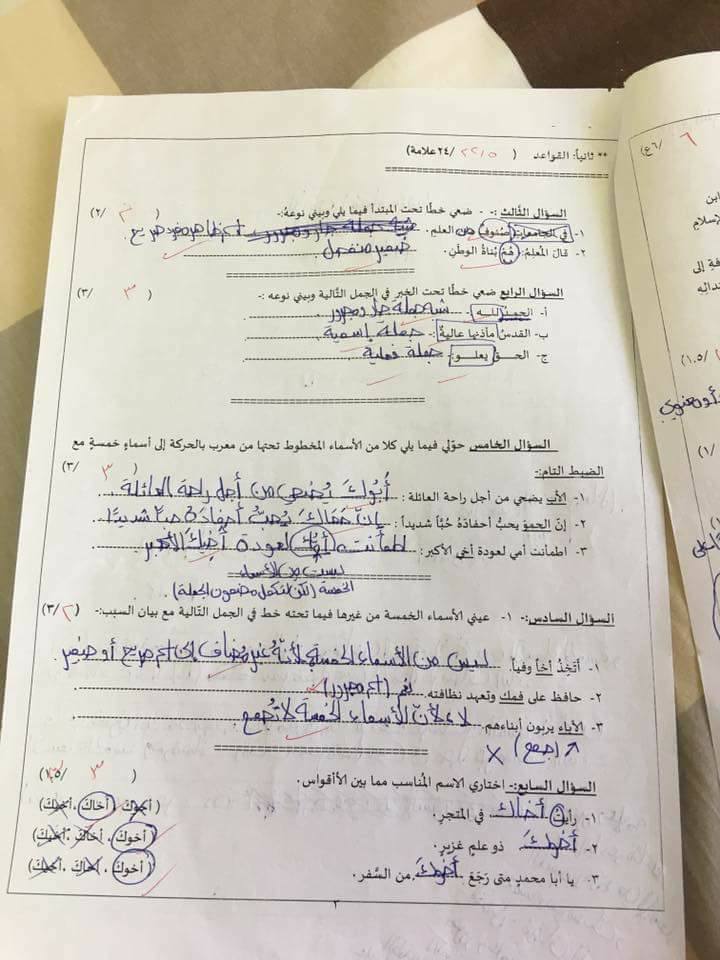 ** ثانياً: القواعد ( ٢٢,٥ /٢٤علامة)
السؤال الثالث :- ضعي خطًا تحت المبتدأ فيما يلي وبيني نوعهُ:- ( ٢ /٢)
١- في الجامعات صُنوف من العلم. اسم ظاهر مفرد صريح
٢- قالَ المُعلمُ: هُمْ بُناةُ الوطنِ. ضمير منفصل
السؤال الرابع ضعي خطًا تحت الخبر في الجمل التالية وبيني نوعه :- ( ٣ /٣)
أ- الحمدُ لله : شبه جملة جار و مجرور
ب- القدسُ مآذنها عاليةٌ : جملة إسمية
ج- الحق يعلو : جملة فعلية
السؤال الخامس حوّلي فيما يلي كلا من الأسماء المخطوط تحتها من معرب بالحركة إلى أسماءٍ خمسةٍ مع
الضبط التام:- ( ٣ /٣)
١- الأب يضحي من أجل راحة العائلة : أبُوكَ يُضحي من أجل راحة العائلة
٢- إنّ الحموَ يحبُّ أحفادَهُ حُبًّا شديداً : إنّ حَمَاكَ يُحبُّ أحفادَهُ حبّاً شديدًا
٣- اطمأنت أمي لعودة أخي الأكبر: اطمأنت أمك لعودة أخيكَ الأكبر
ليست من الأسماء
الخمسة (لكن لتكمل مضمون الجملة)
السؤال السادس:- ١- عيني الأسماء الخمسة من غيرها فيما تحته خط في الجمل التالية مع بيان السبب:- ( ٢ /٣)
١- أتّخِذُ أخاً وفياً. ليس من الأسماء الخمسة لأنهُ غير مُضاف إلى اسم صريح أو ضمير
٢- حافظ على فمك وتعهد نظافته. نعم (اسم مجرور)
٣- الآباء يربون أبناءهم. لا، لأنّ الأسماء الخمسة لا تُجمع
(جمع) X
السؤال السابع:- اختاري الاسم المُناسب مما بين الأقواس. ( ٣ /١,٥)
١- رأيتُ أخاك في المتجرِ. (أخوكَ، أخاكَ، أخيكَ)
٢- أخوكَ ذو علمٍ غزيرٍ. (أخوكَ، أخاكَ، أخيكَ)
٣- يا أبا محمدٍ متى رَجَعَ أخوكَ من السَّفر. (أخوكَ، أخاكَ، أخيكَ)
٣
٦ /٦ع)